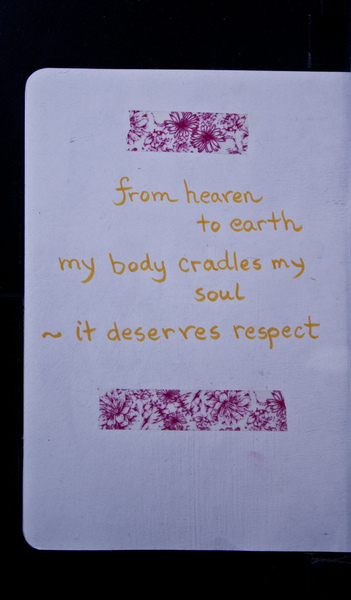 from heaven
to earth
my body cradles my
soul
~ it deserves respect